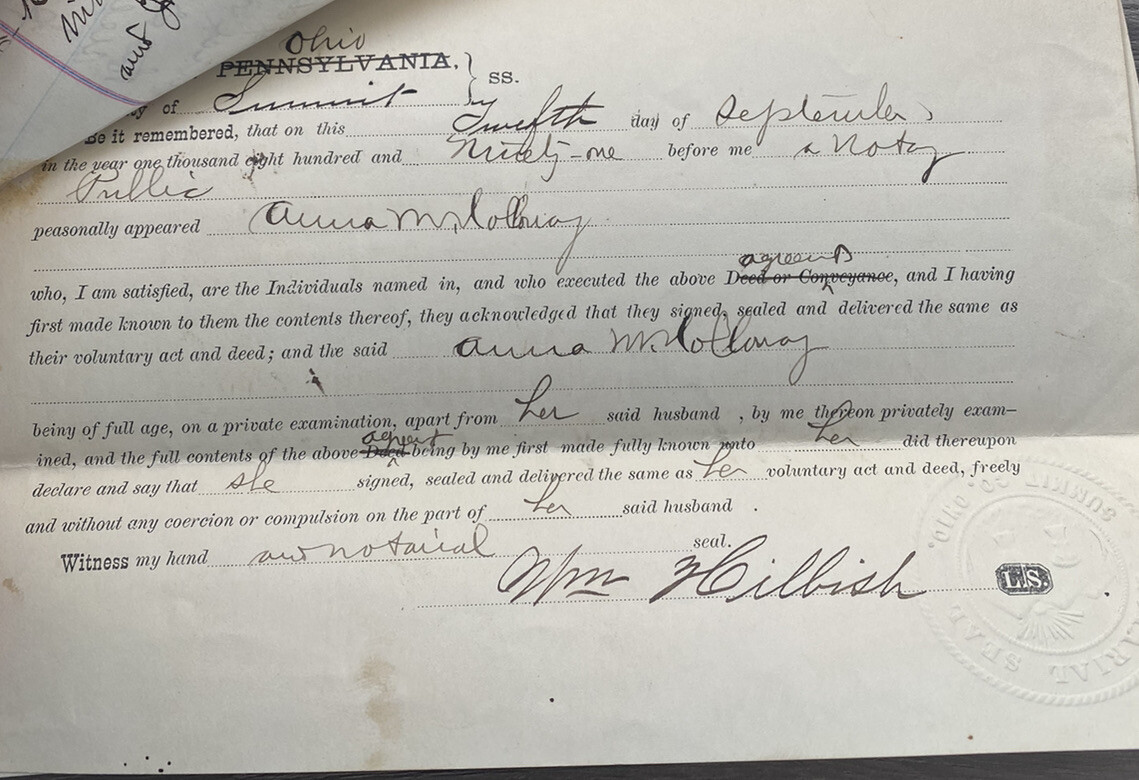 and
Ohio
PENNSYLVANIA, } ss.
of Summit
Be it remembered, that on this Twelfth day of September
in the year one thousand eight hundred and Ninety-one before me a Notary
Public
peasonally appeared Anna M. Holloway
agreement
who, I am satisfied, are the Individuals named in, and who executed the above Deed or Conveyance, and I having
first made known to them the contents thereof, they acknowledged that they signed, sealed and delivered the same as
their voluntary act and deed; and the said Anna M. Holloway
beiny of full age, on a private examination, apart from her said husband , by me thereon privately exam-
agreement
ined, and the full contents of the above Deed being by me first made fully known unto her did thereupon
declare and say that she signed, sealed and delivered the same as her voluntary act and deed, freely
and without any coercion or compulsion on the part of her said husband .
Witness my hand and notarial seal.
Wm Hilbish L.S.
SUMMIT CO. OHIO.
ARIAL SEAL